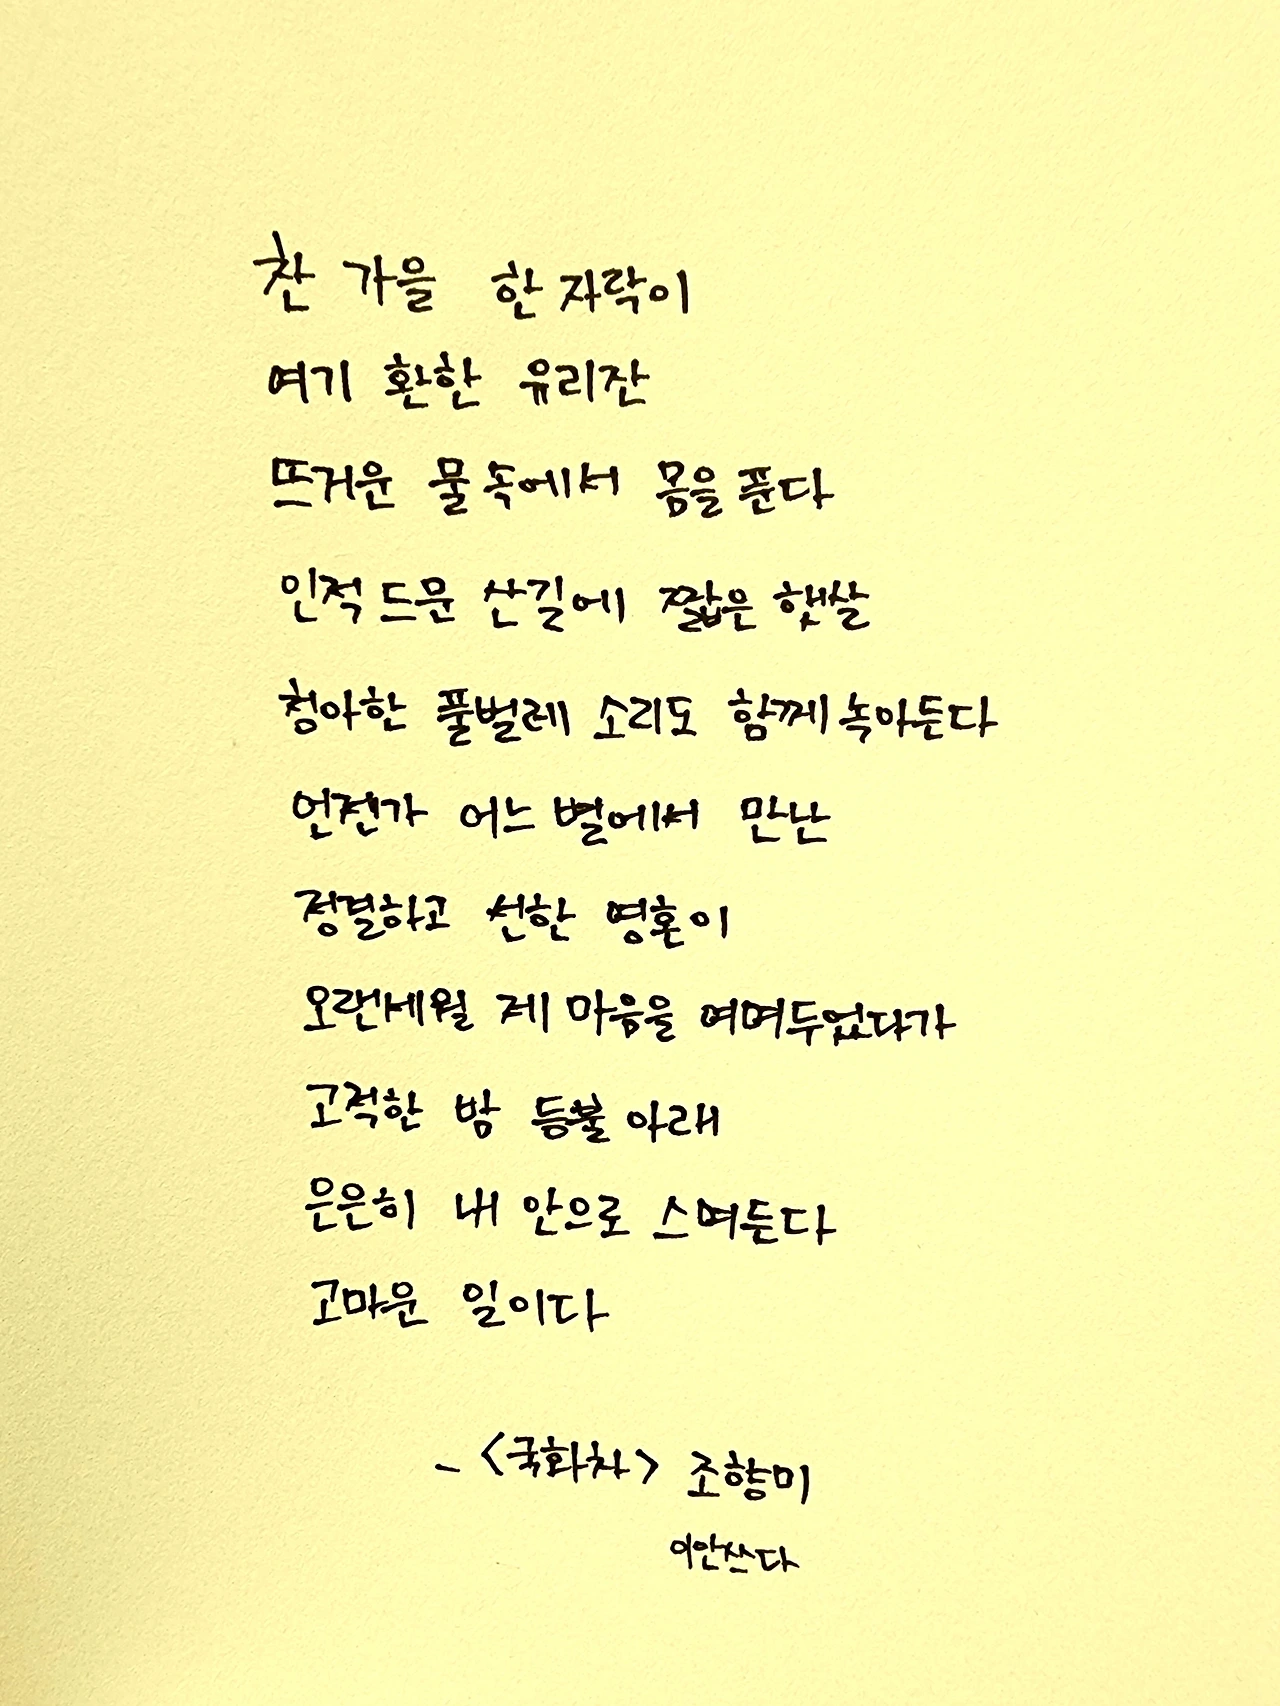 찬 가을 한 자락이
여기 환한 유리잔
뜨거운 물 속에서 몸을 푼다
인적 드문 산길에 짧은 햇살
청아한 풀벌레 소리도 함께 녹아든다
언젠가 어느 별에서 만난
정결하고 선한 영혼이
오랜세월 제 마음을 여며두었다가
고적한 밤 등불 아래
은은히 내 안으로 스며든다
고마운 일이다
- <국화차> 조향미
이안쓰다